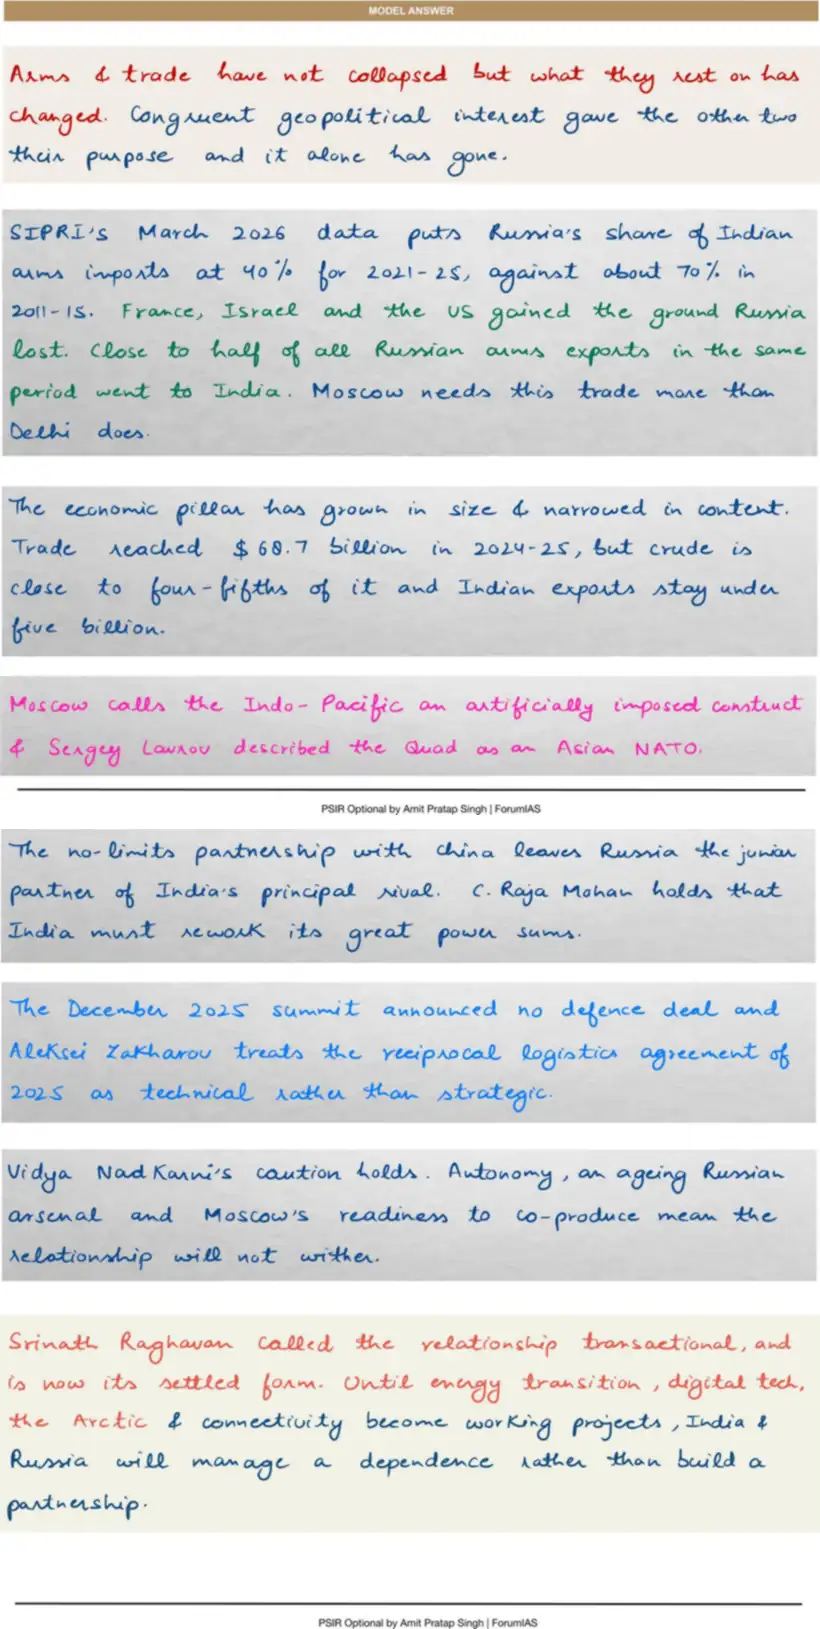 MODEL ANSWER
Arms & trade have not collapsed but what they rest on has
changed. Congruent geopolitical interest gave the other two
their purpose and it alone has gone.
SIPRI's March 2026 data puts Russia's share of Indian
arms imports at 40% for 2021-25, against about 70% in
2011-15. France, Israel and the US gained the ground Russia
lost. Close to half of all Russian arms exports in the same
period went to India. Moscow needs this trade more than
Delhi does.
The economic pillar has grown in size & narrowed in content.
Trade reached $ 68.7 billion in 2024-25, but crude is
close to four-fifths of it and Indian exports stay under
five billion.
Moscow calls the Indo-Pacific an artificially imposed construct
& Sergey Lavrov described the Quad as an Asian NATO.
PSIR Optional by Amit Pratap Singh | ForumIAS
The no-limits partnership with China leaves Russia the junior
partner of India's principal rival. C. Raja Mohan holds that
India must rework its great power sums.
The December 2025 summit announced no defence deal and
Aleksei Zakharov treats the reciprocal logistics agreement of
2025 as technical rather than strategic.
Vidya Nadkarni's caution holds. Autonomy, an ageing Russian
arsenal and Moscow's readiness to co-produce mean the
relationship will not wither.
Srinath Raghavan called the relationship transactional, and
is now its settled form. Until energy transition, digital tech,
the Arctic & connectivity become working projects, India &
Russia will manage a dependence rather than build a
partnership.
PSIR Optional by Amit Pratap Singh | ForumIAS